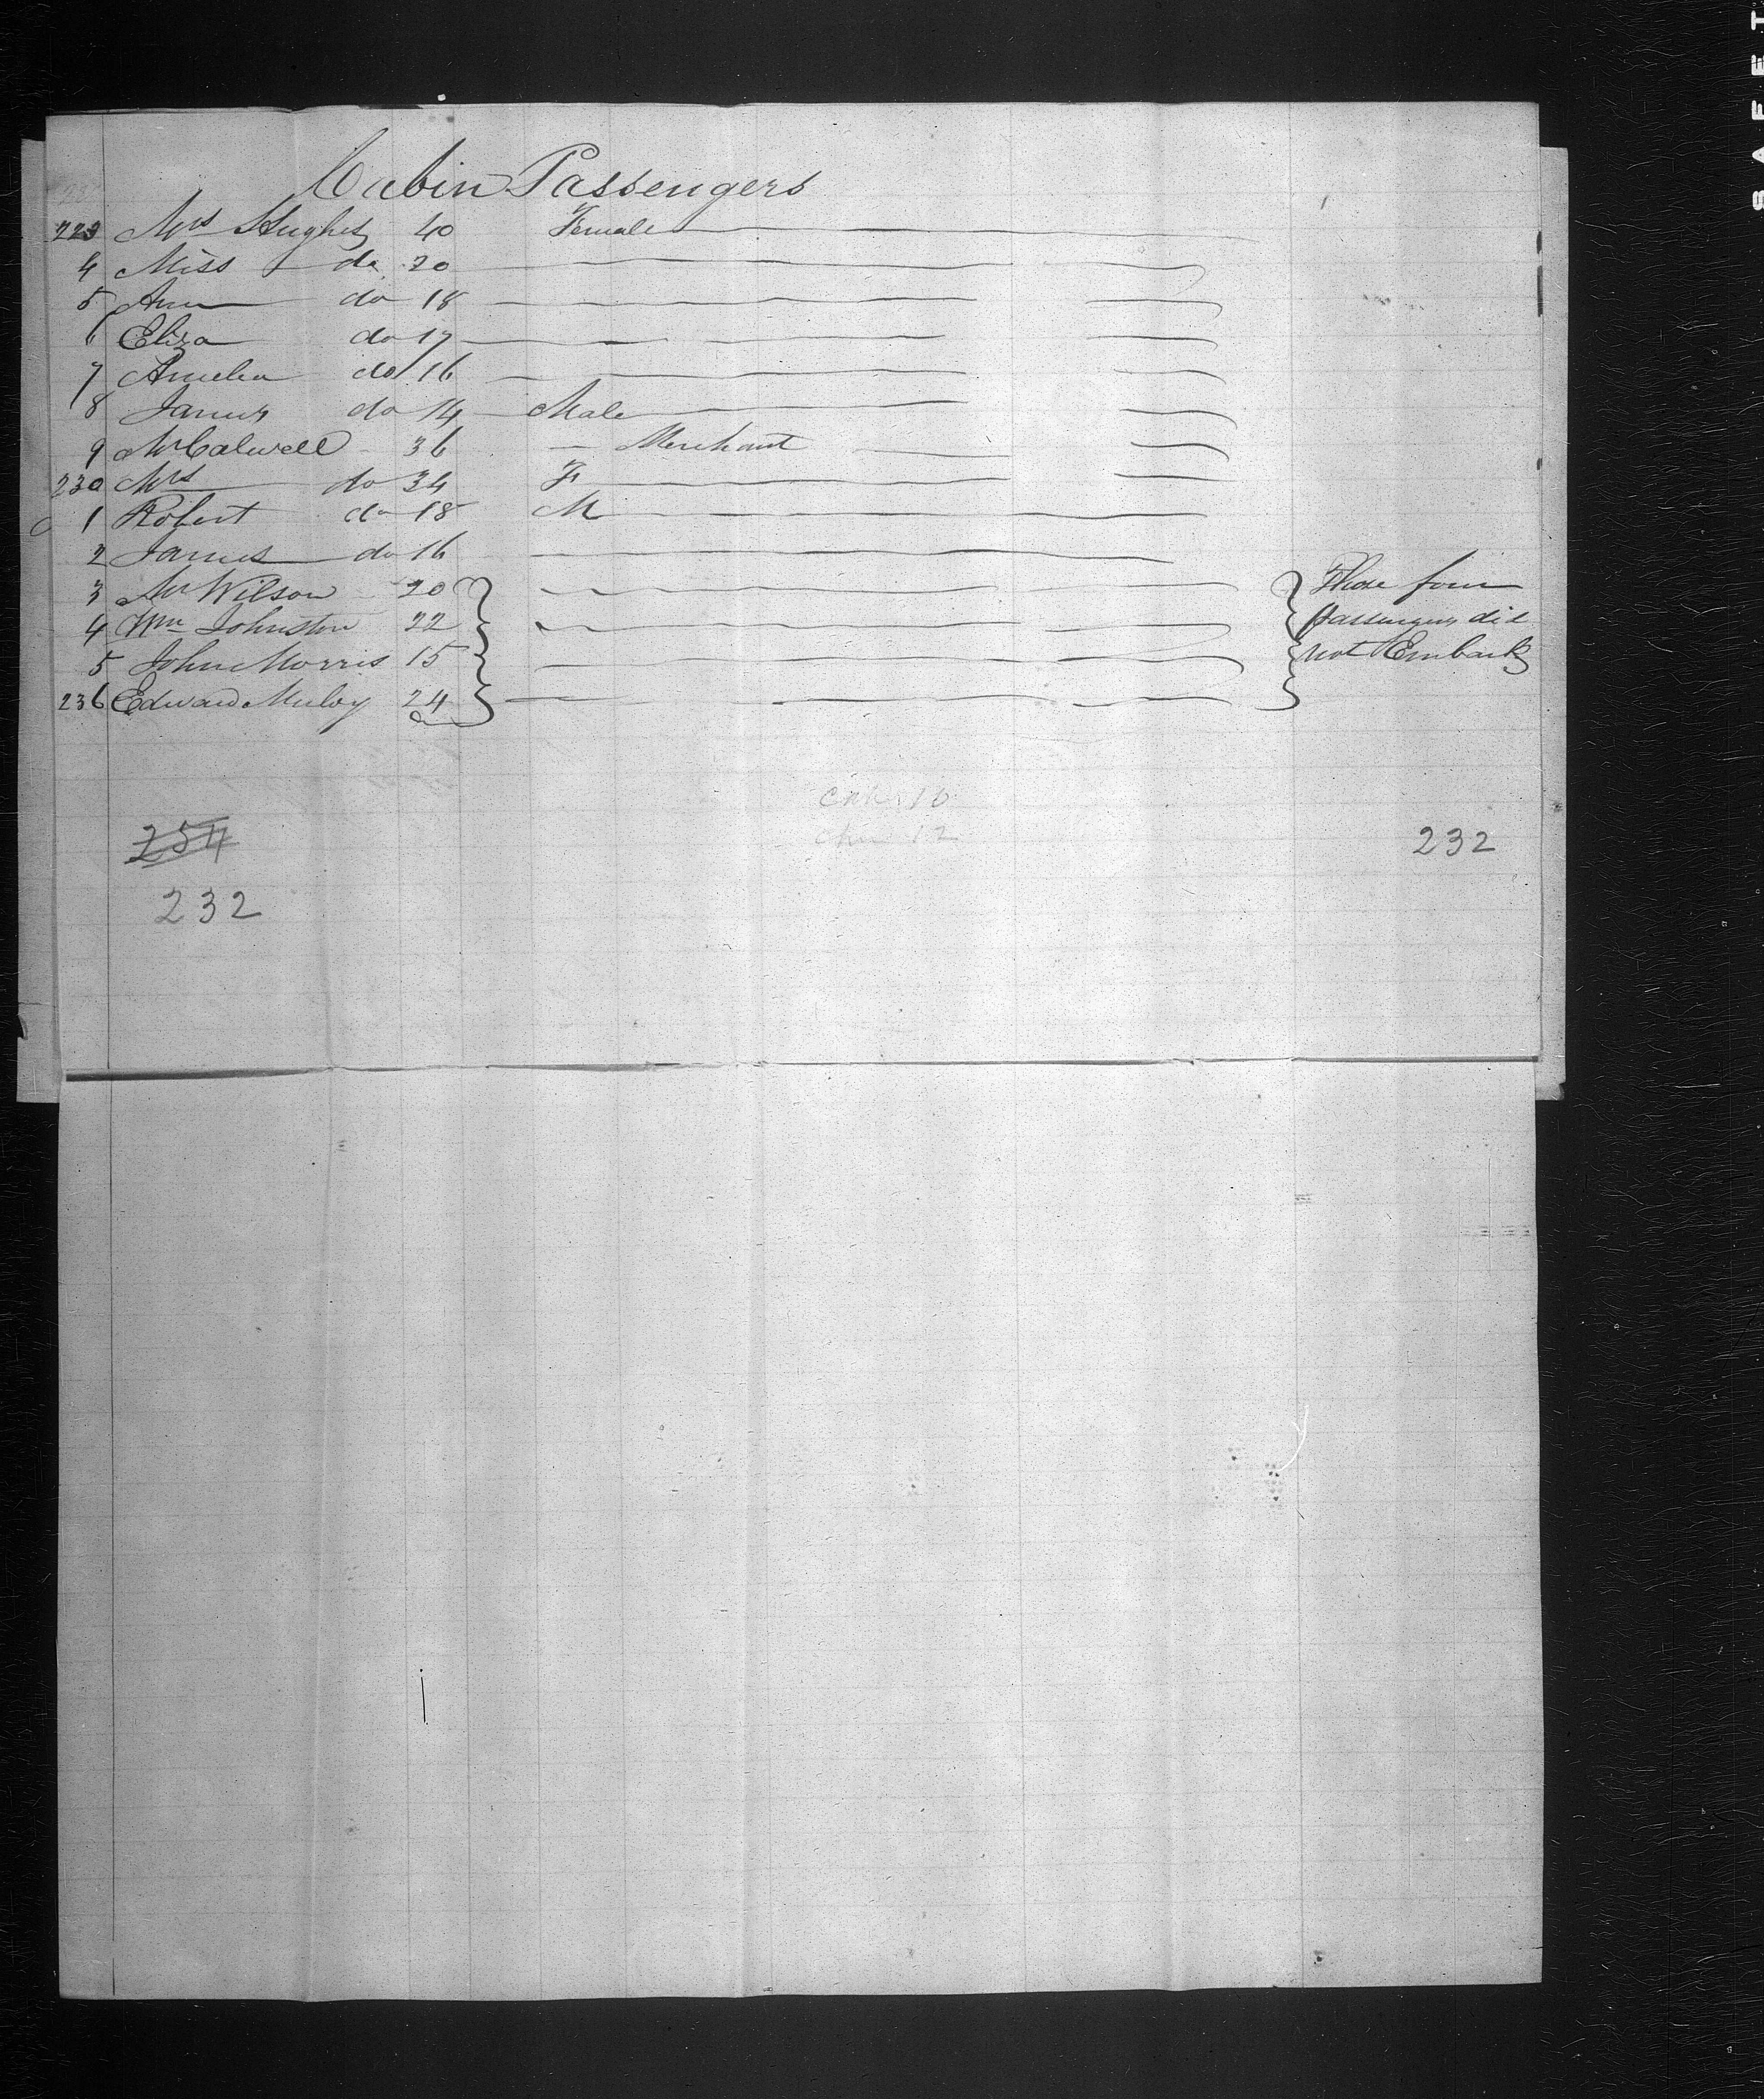 Cabin Passengers
223 Mrs Hughes 40 Female
4 Miss do 20
5 Ann do 18
6 Eliza do 17
7 Amelia do 16
8 James do 14 Male
9 Mr Calwell 36 Merchant
230 Mrs do 34 F
1 Robert do 18 M
2 James do 16
3 Mr Wilson 20 These four
4 Wm Johnston 22 passengers did
5 John Morris 15 not Embark
236 Edward 24
254 232
232
SAFET